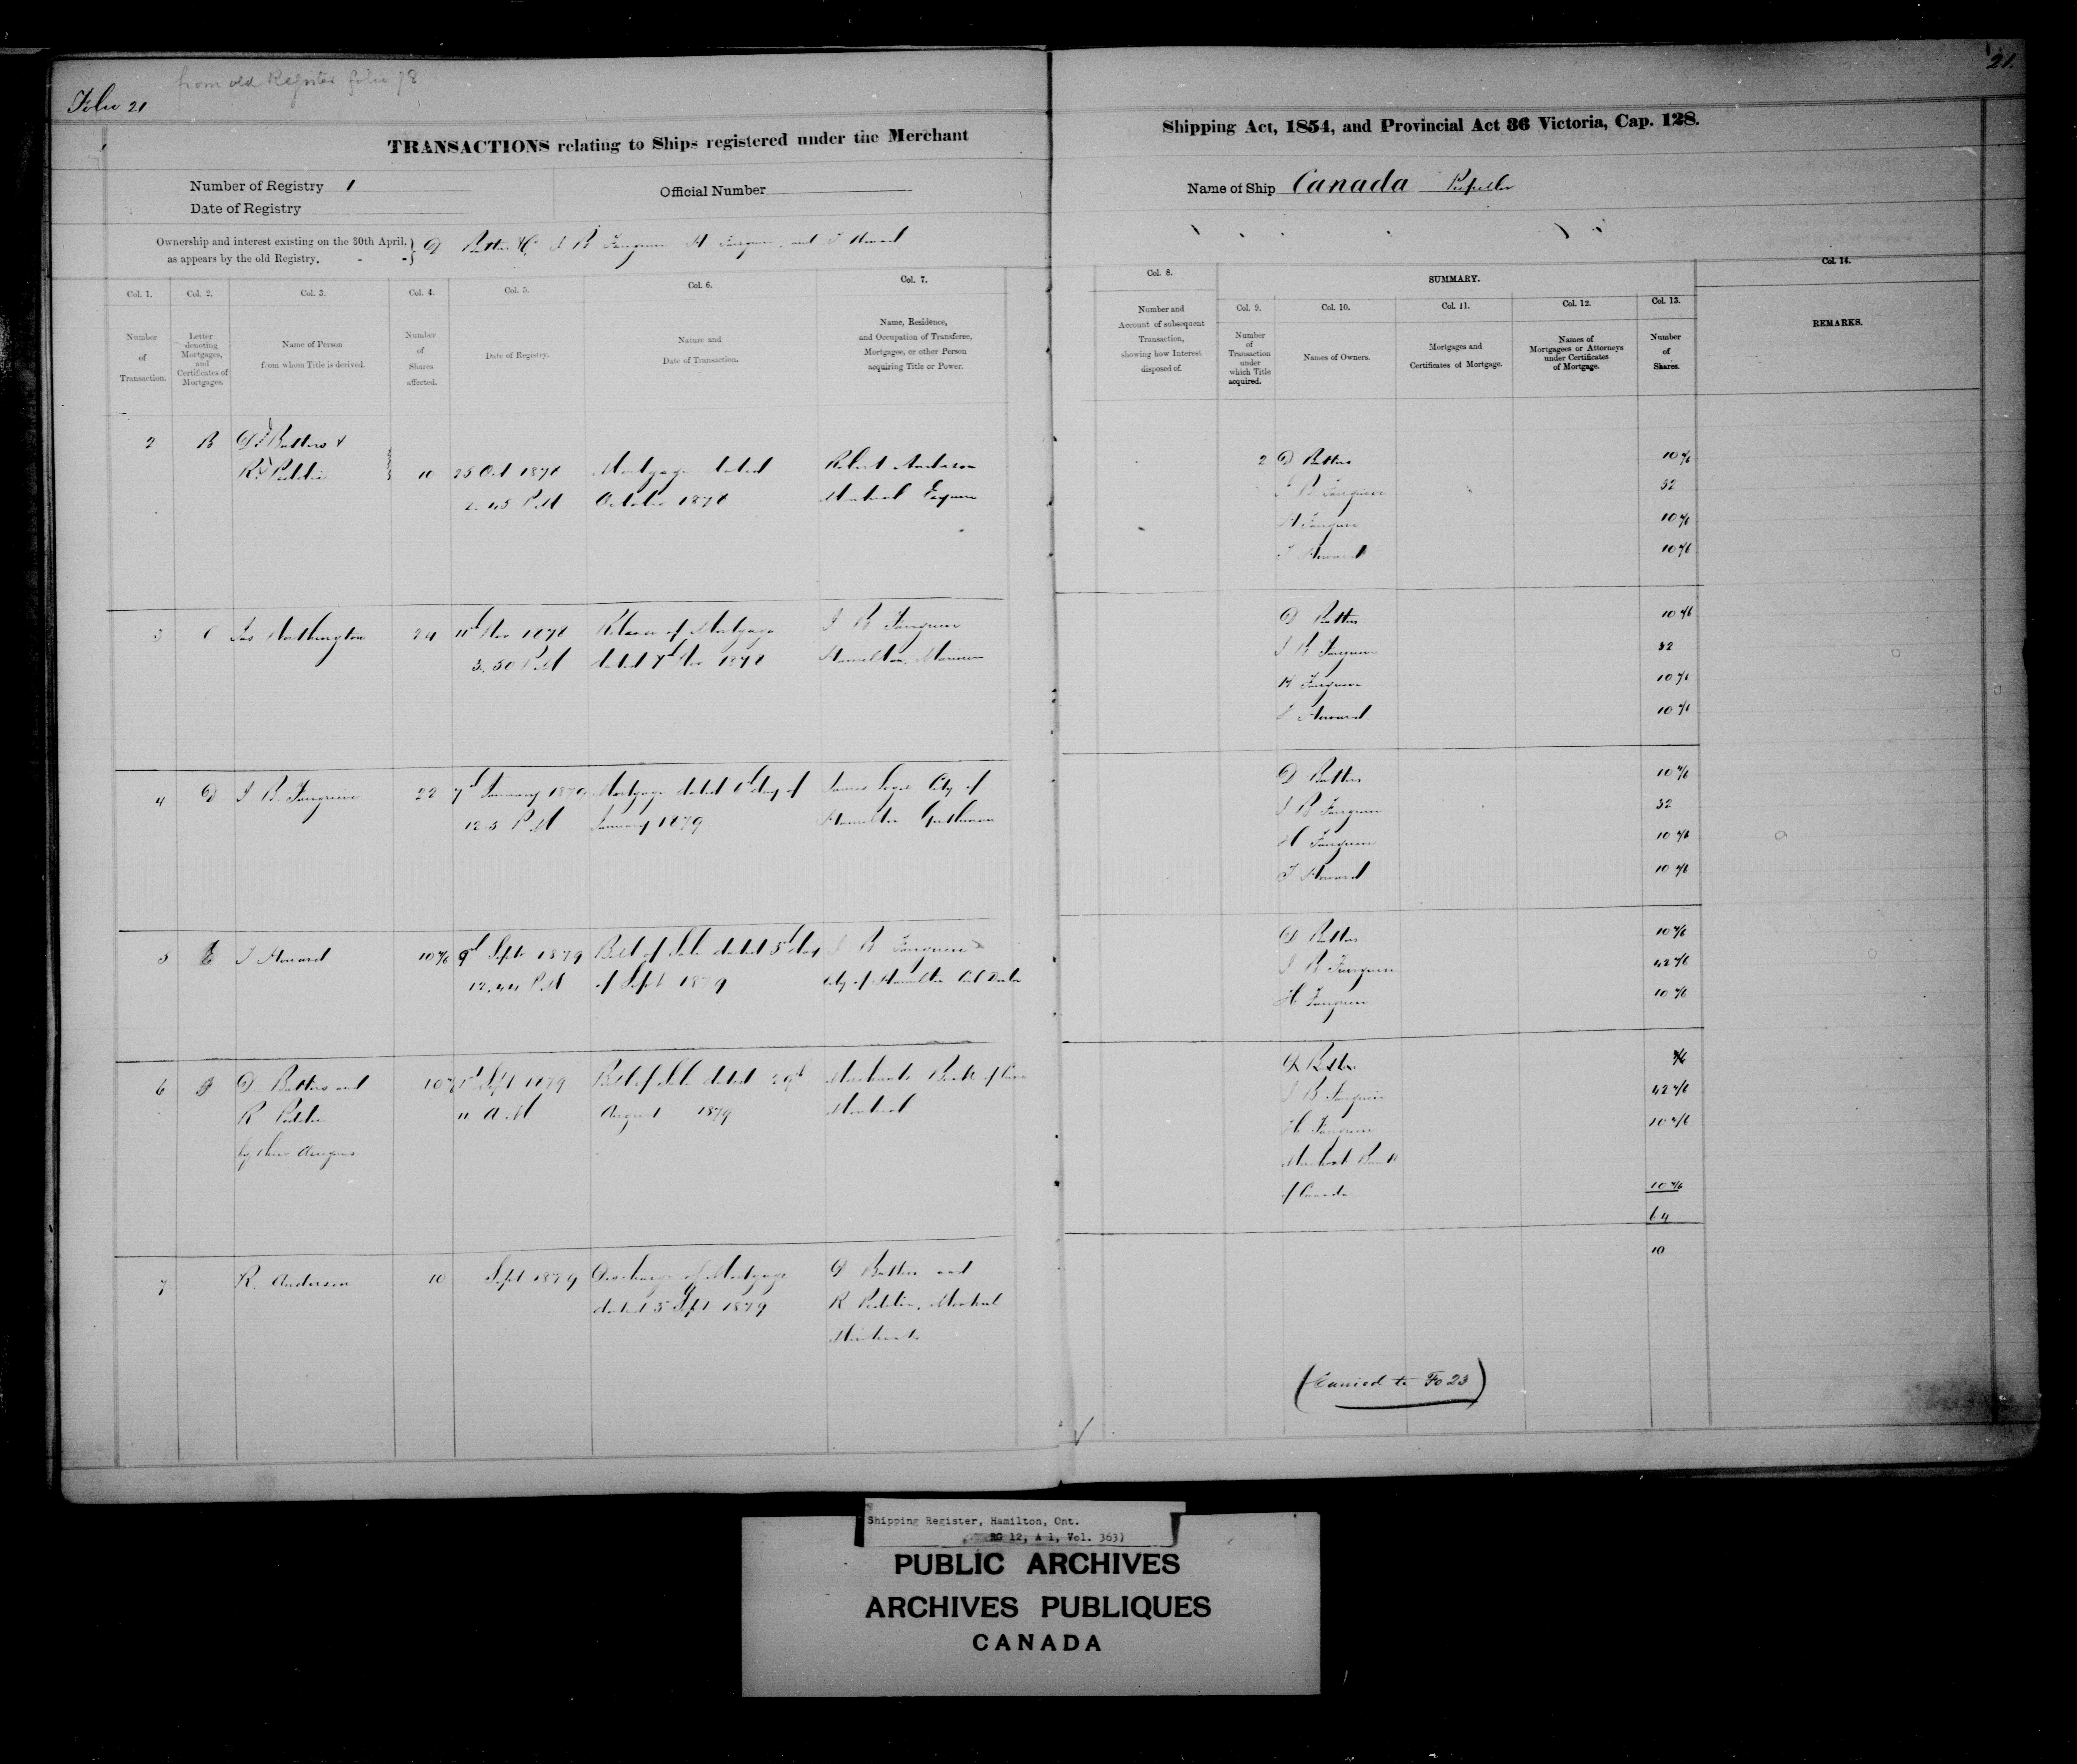 from old Register folio 78
Folio 21
21.
TRANSACTIONS relating to Ships registered under the Merchant
Shipping Act, 1854, and Provincial Act 36 Victoria, Cap. 128.
Number of Registry 1
Official Number
Name of Ship Canada Propeller
Date of Registry
Ownership and interest existing on the 30th April,
as appears by the old Registry.
D Butters & Co J B Fairgrieve H Fairgrieve and T Howard
Col. 1.
Number
of
Transaction.
Col. 2.
Letter
denoting
Mortgages,
and
Certificates of
Mortgages.
Col. 3.
Name of Person
from whom Title is derived.
Col. 4.
Number
of
Shares
affected.
Col. 5.
Date of Registry.
Col. 6.
Nature and
Date of Transaction.
Col. 7.
Name, Residence,
and Occupation of Transferee,
Mortgagee, or other Person
acquiring Title or Power.
Col. 8.
Number and
Account of subsequent
Transaction,
showing how Interest
disposed of.
SUMMARY.
Col. 9.
Number
of
Transaction
under
which Title
acquired.
Col. 10.
Names of Owners.
Col. 11.
Mortgages and
Certificates of Mortgage.
Col. 12.
Names of
Mortgagees or Attorneys
under Certificates
of Mortgage.
Col. 13.
Number
of
Shares.
Col. 14.
REMARKS.
2 B D Butters &
R Peddie
10
25 Oct 1878
2.45 P.M
Mortgage dated
October 1878
Robert Anderson
Montreal Esquire
2 D Butters 10 4/6
J B Fairgrieve 32
H Fairgrieve 10 4/6
T Howard 10 4/6
3 C Jas Worthington 24
11th Nov 1878
3.30 P.M
Release of Mortgage
dated 7th Nov 1878
J B Fairgrieve
Hamilton, Mariner
D Butters 10 4/6
J B Fairgrieve 32
H Fairgrieve 10 4/6
T Howard 10 4/6
4 D J B Fairgrieve 22
7th January 1879
12.5 P.M
Mortgage dated 6th day of
January 1879
James City of
Hamilton Gentleman
D Butters 10 4/6
J B Fairgrieve 32
H Fairgrieve 10 4/6
T Howard 10 4/6
5 E T Howard 10 4/6
9th Septr 1879
12.44 P.M
Bill of Sale dated 5th day
of Sept 1879
J B Fairgrieve
City of Hamilton
D Butters 10 4/6
J B Fairgrieve 42 4/6
H Fairgrieve 10 4/6
6 D Butters and
R Peddie
by their Assignees
Sept 1879
11 A.M
Bill of Sale dated 29th
August 1879
Merchants Bank of Can
Montreal
D Butters
J B Fairgrieve 42 4/6
H Fairgrieve 10 4/6
Merchant Bank
of Canada 10 4/6
64
7 R. Anderson 10
Sept 1879
Discharge of Mortgage
dated 5 Sept 1879
D Butters and
R Peddie, Montreal
Merchants
10
(Carried to Fo 23)
Shipping Register, Hamilton, Ont.
RG 12, A 1, Vol. 363)
PUBLIC ARCHIVES
ARCHIVES PUBLIQUES
CANADA